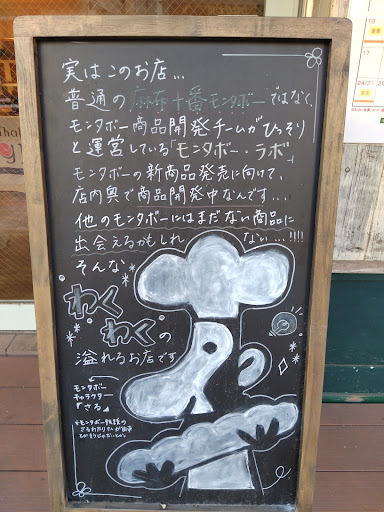 実はこのお店...
普通の麻布十番モンタボーではなく、
モンタボー商品開発チームがひっそり
と運営している「モンタボー・ラボ」
モンタボーの新商品発売に向けて、
店内奥で商品開発中なんです...
他のモンタボーにはまだない商品に
出会えるかもしれない...!!!!
そんな
わく
わくの
溢れるお店です
モンタボー
キャラクター
「さる」
10
17
24/31